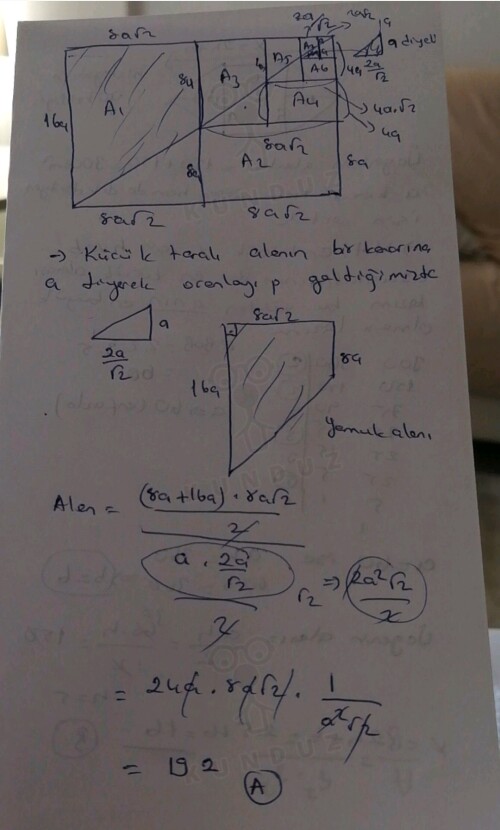 8a√2
2a√2
2a/√2
a
a diyelim
16a
A1
8a
A3
A5
A6
4a
2a/√2
A4
4a√2
4a
8a√2
A2
8a
8a
8a√2
8a√2
→ Küçük taralı alanın bir kenarına
a diyerek oranlayıp geldiğimizde
a
2a/√2
8a√2
16a
8a
yamuk alanı
Alan = (8a+16a) · 8a√2 / 2
a · 2a/√2 / 2
√2 ⇒ 2a²√2 / 2
= 24a · 8a√2 · 1 / a²√2
= 192
A
GUNDUZ